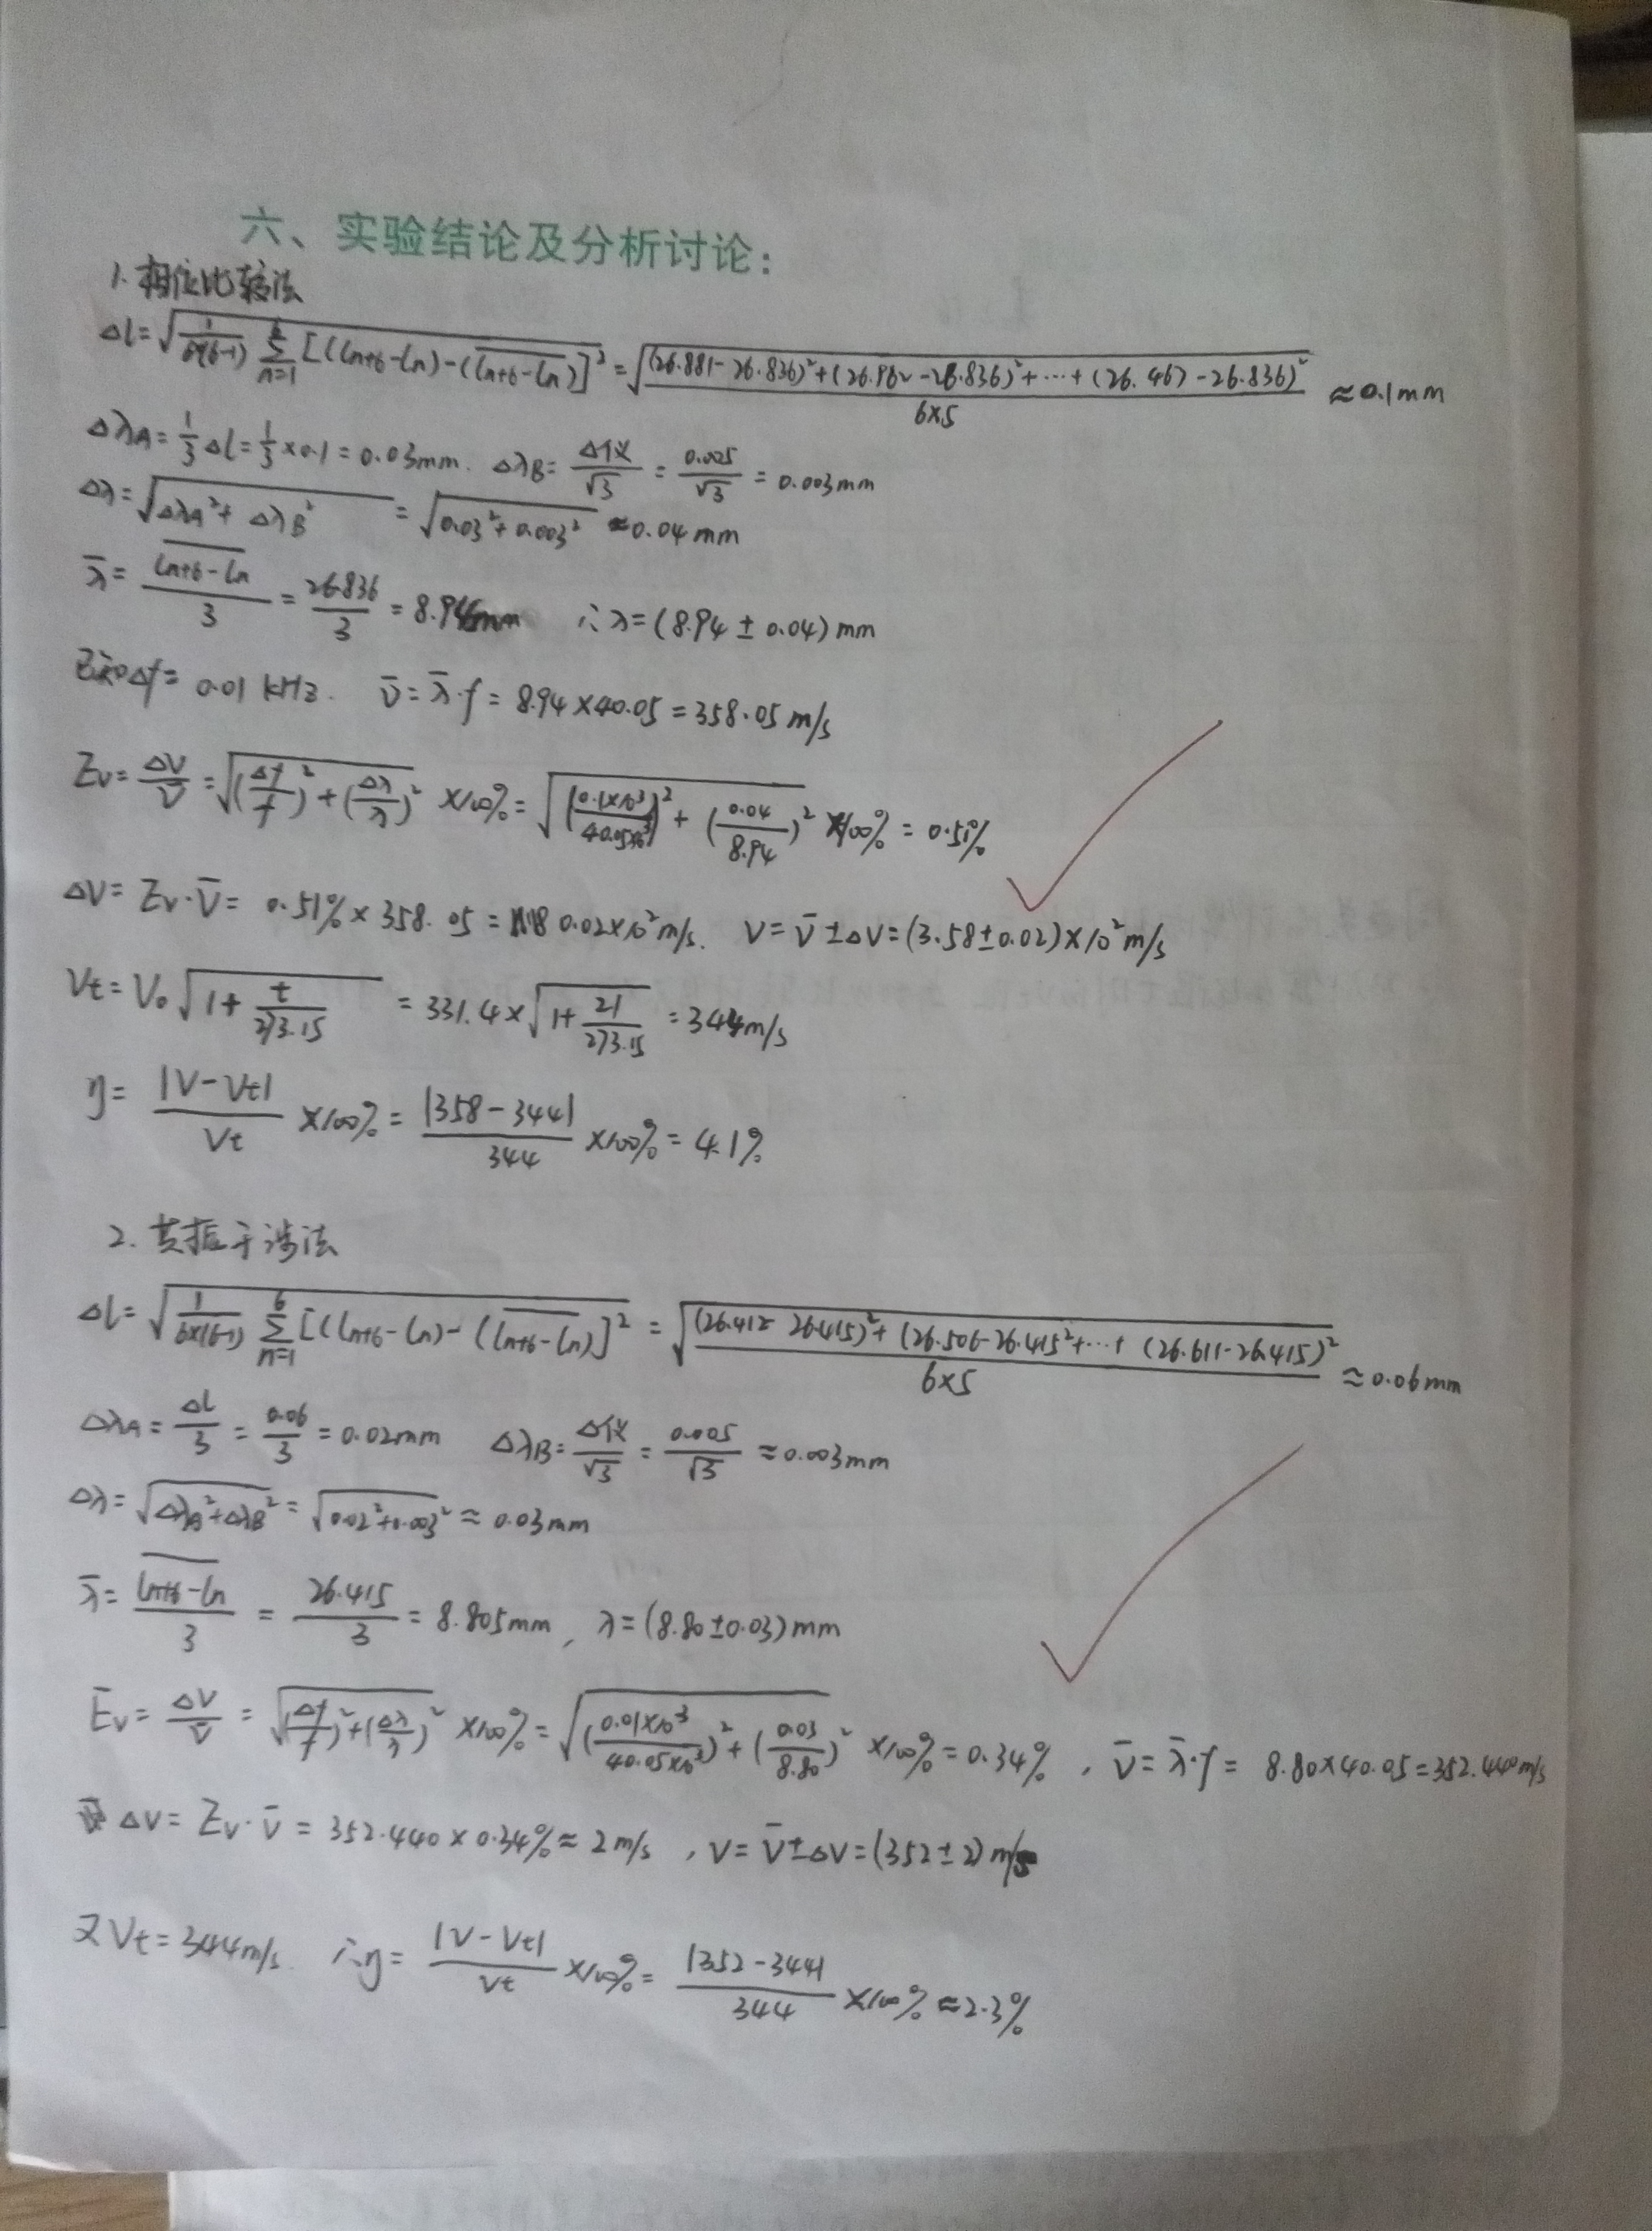 六、实验结论及分析讨论:
1. 相位比较法
Δl=√(1/(6×(6-1)) Σ(n=1→6)[(ln+6-ln)-(ln+6-ln‾)]²)=√(((26.881-26.836)²+(26.962-26.836)²+⋯+(26.467-26.836)²)/(6×5)) ≈0.1mm
ΔλA=1/3 Δl=1/3×0.1=0.03mm. ΔλB=Δ仪/√3=0.005/√3=0.003mm
Δλ=√(ΔλA²+ΔλB²)=√(0.03²+0.003²)≈0.04mm
λ̄=(ln+6-ln‾)/3=26.836/3=8.94mm ∴λ=(8.94±0.04)mm
已知Δf=0.01kHz. v̄=λ̄·f=8.94×40.05=358.05m/s
Ev=ΔV/V̄=√((Δf/f)²+(Δλ/λ)²)×100%=√((0.1×10³/40.05×10³)²+(0.04/8.94)²)×100%=0.51%
ΔV=Ev·V̄=0.51%×358.05=0.02×10²m/s. V=v̄±ΔV=(3.58±0.02)×10²m/s
Vt=V₀√(1+t/273.15)=331.4×√(1+21/273.15)=344m/s
η=|V-Vt|/Vt×100%=|358-344|/344×100%=4.1%
2. 共振干涉法
Δl=√(1/(6×(6-1)) Σ(n=1→6)[(ln+6-ln)-(ln+6-ln‾)]²)=√(((26.412-26.415)²+(26.506-26.415²+⋯+(26.611-26.415)²)/(6×5))≈0.06mm
ΔλA=Δl/3=0.06/3=0.02mm ΔλB=Δ仪/√3=0.005/√3≈0.003mm
Δλ=√(ΔλA²+ΔλB²)=√(0.02²+0.003²)≈0.03mm
λ̄=(ln+6-ln‾)/3=26.415/3=8.805mm, λ=(8.80±0.03)mm
Ev=ΔV/V̄=√((Δf/f)²+(Δλ/λ)²)×100%=√((0.01×10³/40.05×10³)²+(0.03/8.80)²)×100%=0.34%, v̄=λ̄·f=8.80×40.05=352.440m/s
ΔV=Ev·v̄=352.440×0.34%≈2m/s, V=V̄±ΔV=(352±2)m/s
又Vt=344m/s. ∴η=|V-Vt|/Vt×100%=|352-344|/344×100%≈2.3%